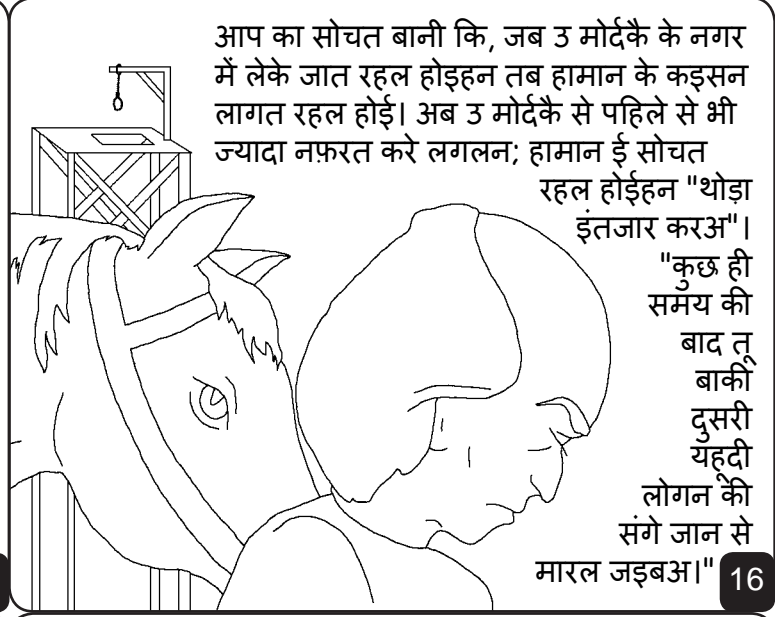 आप का सोचत बानी कि, जब उ मोर्दकै के नगर
में लेके जात रहल होइहन तब हामान के कइसन
लागत रहल होई। अब उ मोर्दकै से पहिले से भी
ज्यादा नफ़रत करे लगलन; हामान ई सोचत
रहल होईहन "थोड़ा
इंतजार करअ"।
"कुछ ही
समय की
बाद तू
बाकी
दुसरी
यहूदी
लोगन की
संगे जान से
मारल जइबअ।"
16